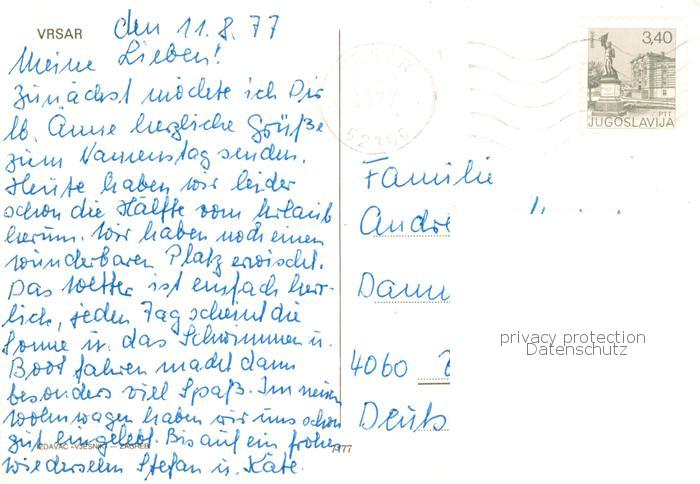 VRSAR
den 11.8.77
Meine Lieben!
Zunächst möchte ich Dir
lb. Anne herzliche Grüße
zum Namenstag senden.
Heute haben wir leider
schon die Hälfte vom Urlaub
herum. Wir haben noch einen
wunderbaren Platz erwischt.
Das Wetter ist einfach herr-
lich, jeden Tag scheint die
Sonne u. das Schwimmen u.
Boot fahren macht dann
besonders viel Spaß. Im neuen
Wohnwagen haben wir uns schon
gut eingelebt. Bis auf ein frohes
Wiedersehn Stefan u. Käte.
IZDAVAČ »VJESNIK« — ZAGREB
3,40
PTT
JUGOSLAVIJA
52356
Familie
André
4060
Deuts
privacy protection
Datenschutz